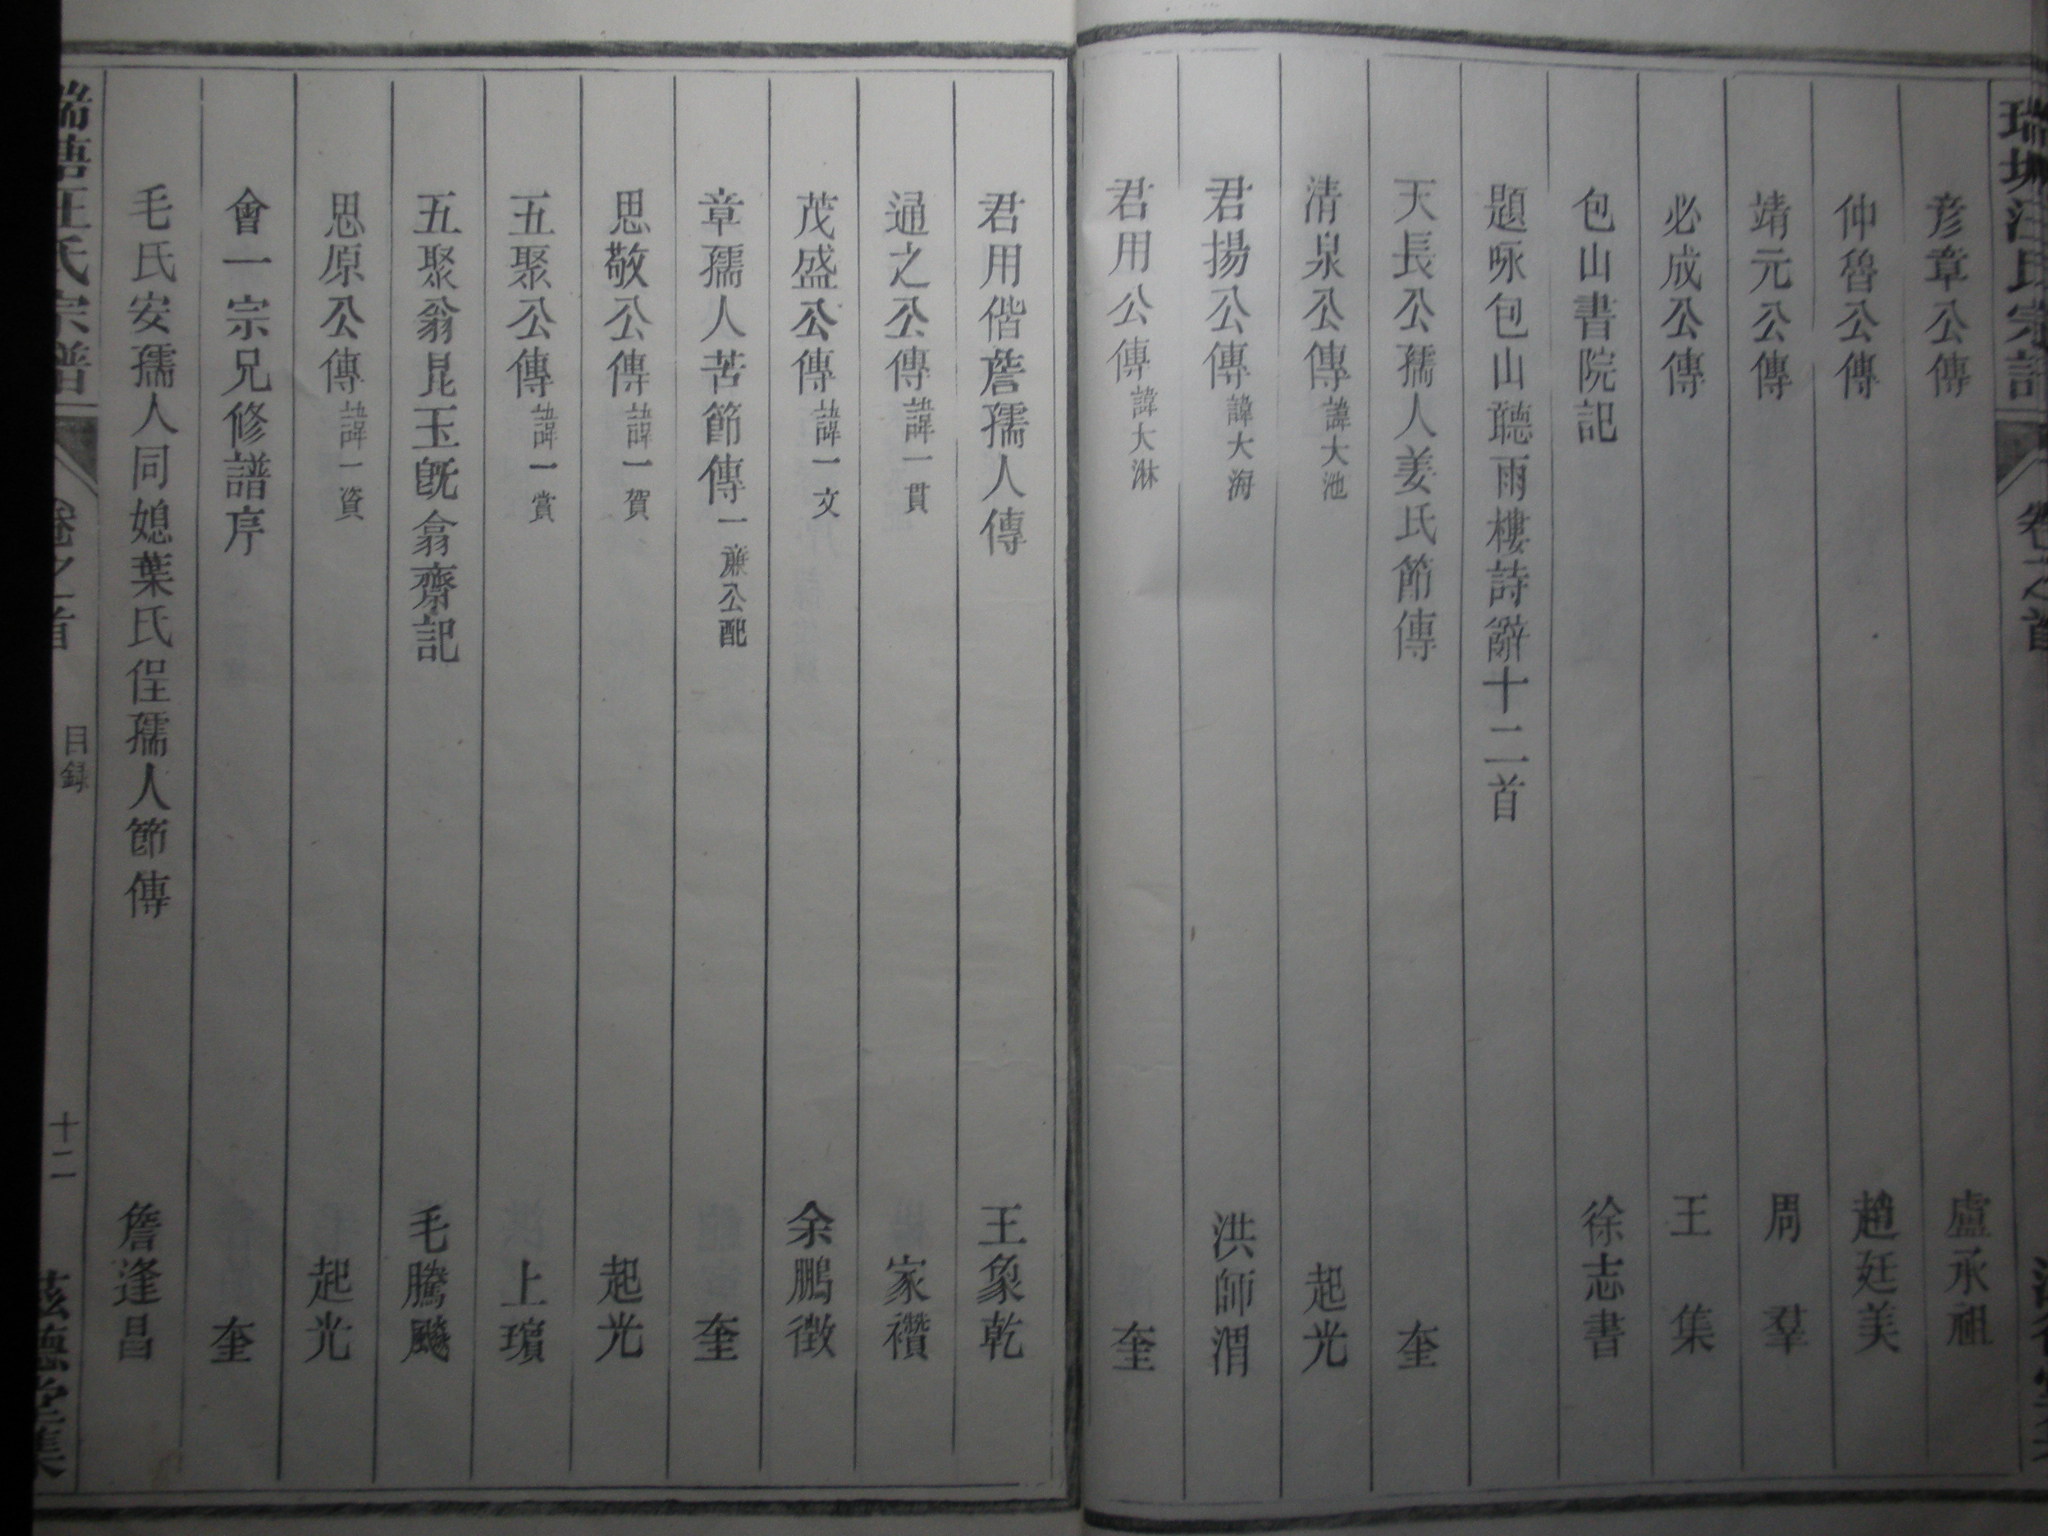 彦章公傳 盧承祖
仲魯公傳 趙廷美
靖元公傳 周羣
必成公傳 王集
包山書院記 徐志書
題咏包山聽雨樓詩辭十二首
天長公孺人姜氏節傳 奎
清泉公傳諱大池 起光
君揚公傳諱大海 洪師渭
君用公傳諱大淋 奎
君用偕詹孺人傳 王象乾
通之公傳諱一貫 家禶
茂盛公傳諱一文 余鵬徵
章孺人苦節傳一廉公配 奎
思敬公傳諱一賀 起光
五聚公傳諱一賞 上璸
五聚翁昆玉旣翕齋記 毛騰飈
思原公傳諱一資 起光
會一宗兄修譜序 奎
毛氏安孺人同媳葉氏侄孺人節傳 詹逢昌
汪氏宗譜 卷之首 目録 十二